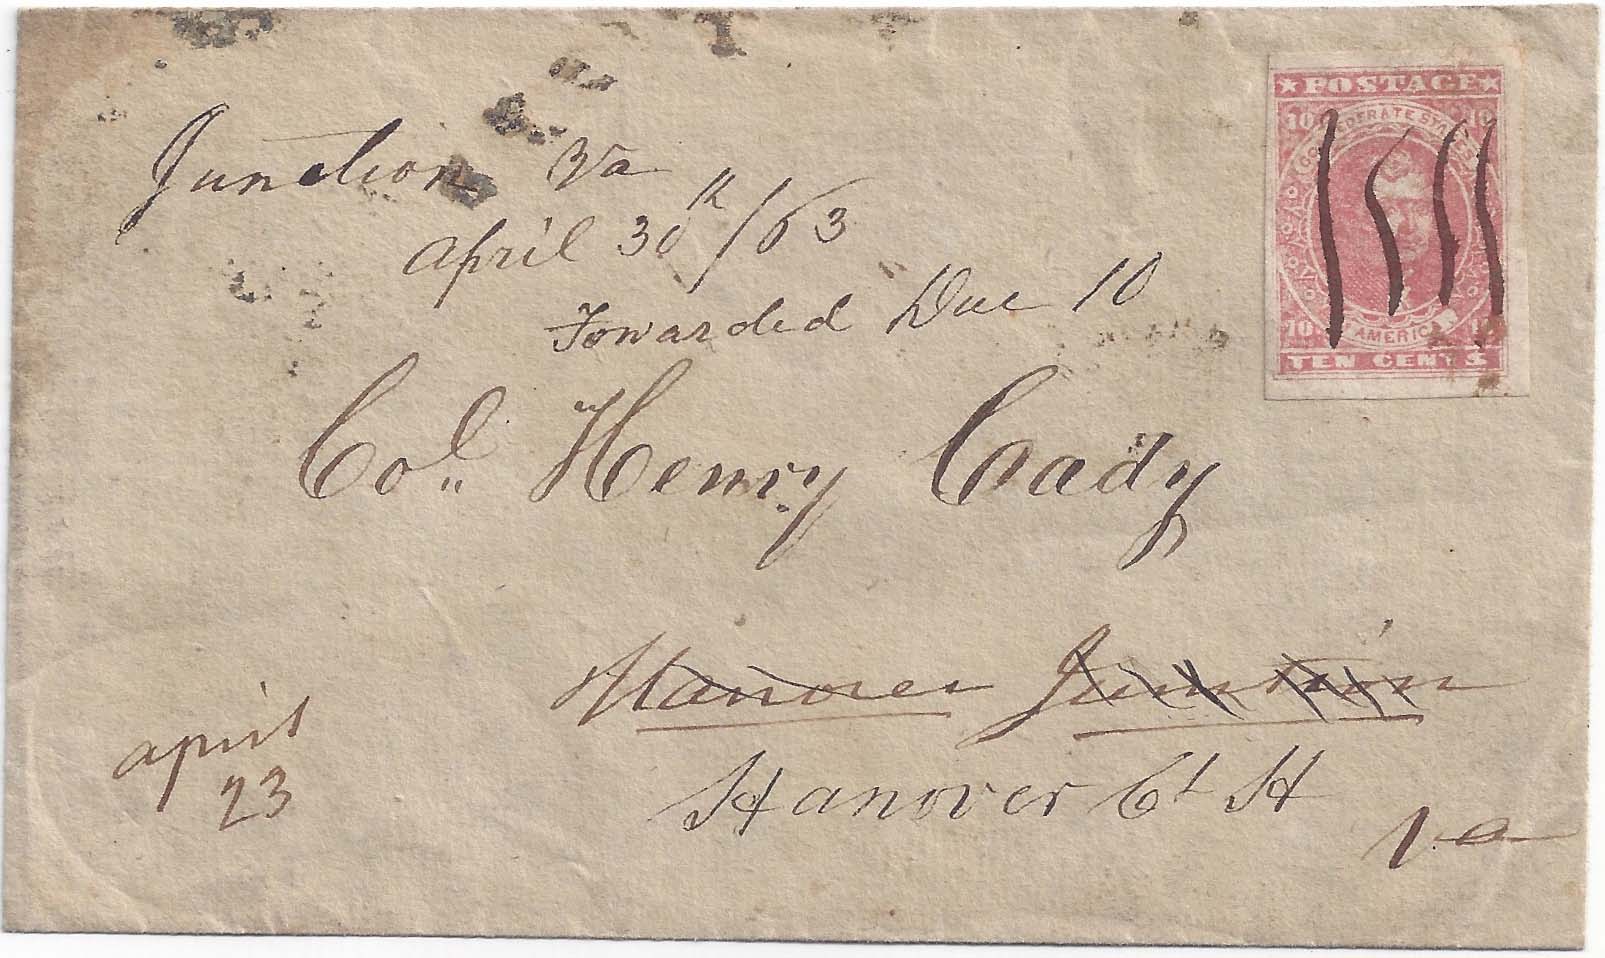 POSTAGE
10 10
CONFEDERATE STATES
OF AMERICA
10 10
TEN CENTS
Junction Va
April 30th /63
Forwarded Due 10
Col. Henry Coady
Hanover Junction
Hanover Ct H
Va
april
23